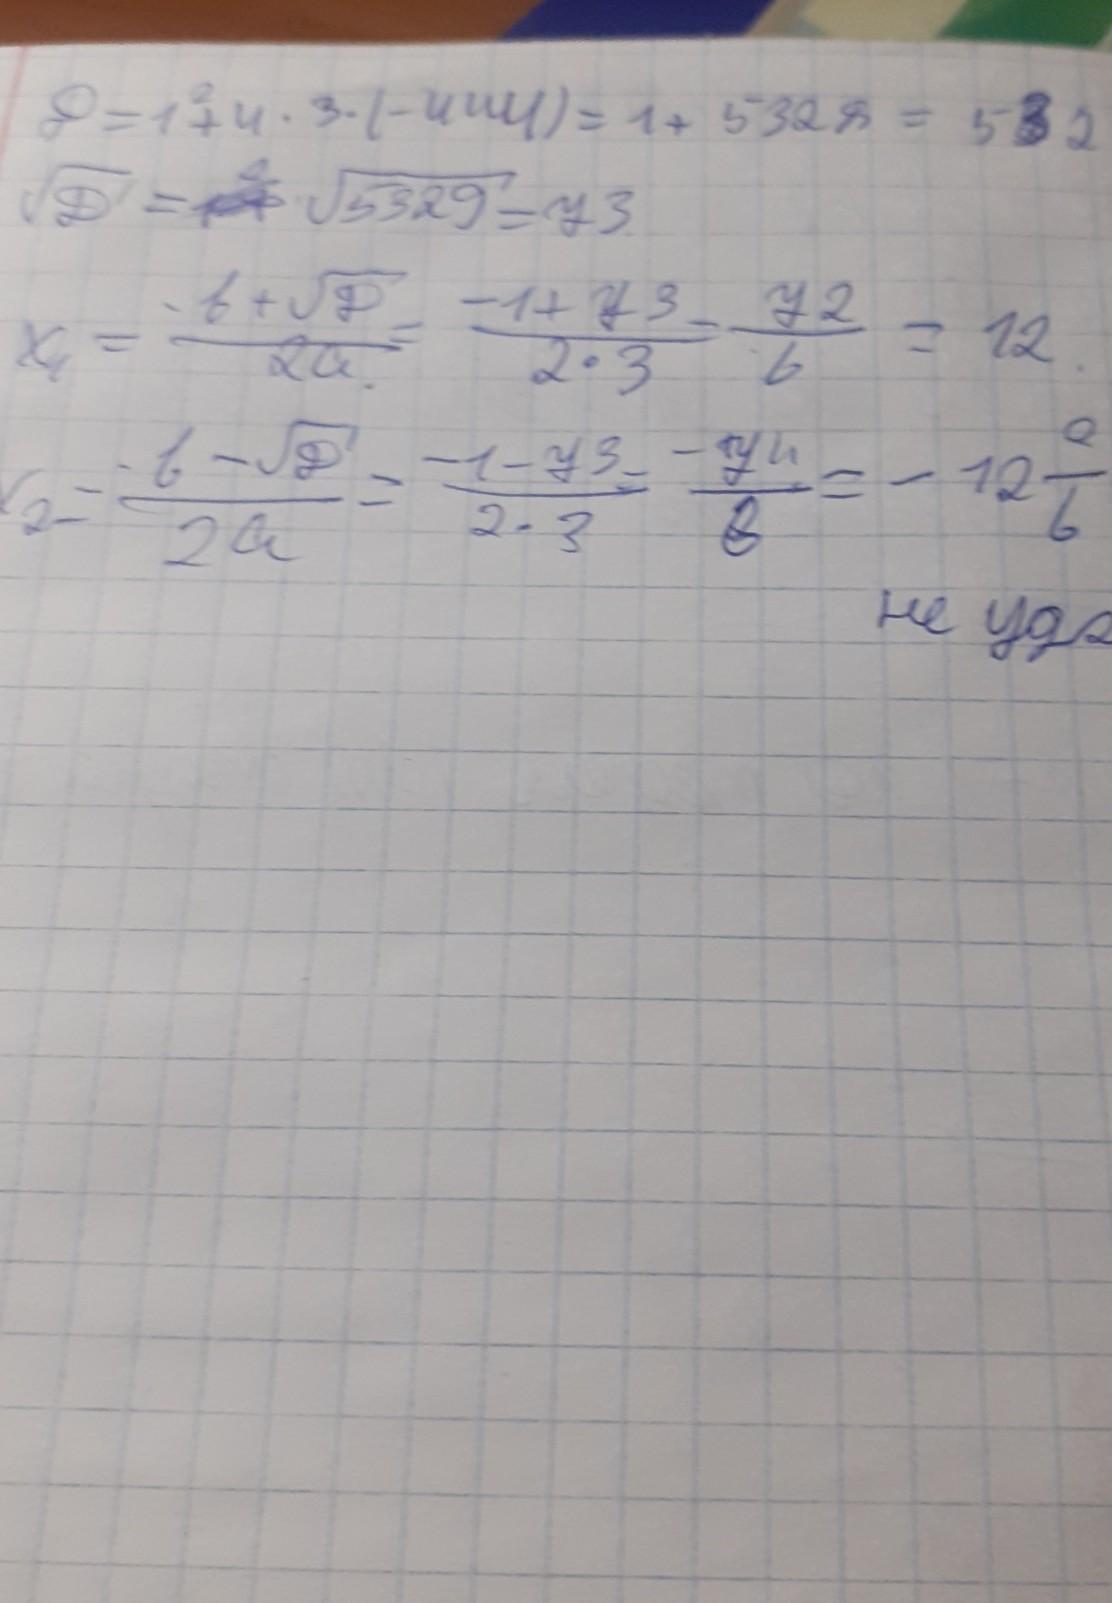 D = 1² + 4 · 3 · (-444) = 1 + 5328 = 532
√D = √5329 = 73
x₁ = -b + √D / 2a = -1 + 73 / 2 · 3 = 72 / 6 = 12
x₂ = -b - √D / 2a = -1 - 73 / 2 · 3 = -74 / 6 = -12 2/6
не удо